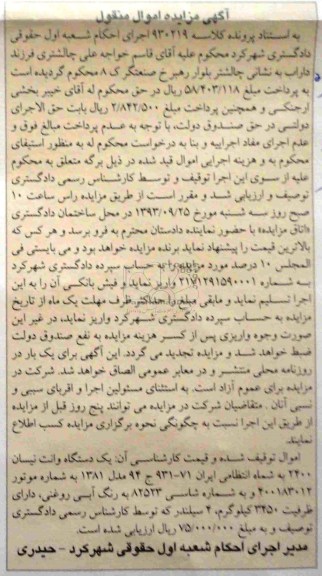 آگهی مزایده اموال منقول
به استناد پرونده کلاسه ۹۳۰۲۱۹ اجرای احکام شعبه اول حقوقی
دادگستری شهرکرد محکوم علیه آقای قاسم خواجه علی چالشتری فرزند
داراب به نشانی چالشتر بلوار رهبر خ صنعتگر ک ۸ محکوم گردیده است
به پرداخت مبلغ ۵۸/۴۰۳/۱۱۸ ریال در حق محکوم له آقای خیبر بخشی
ارجنکی و همچنین پرداخت مبلغ ۲/۸۴۲/۵۰۰ ریال بابت حق الاجرای
دولتی در حق صندوق دولت، با توجه به عدم پرداخت مبالغ فوق و
عدم اجرای مفاد اجراییه و بنا به درخواست محکوم له به منظور استیفای
محکوم به و هزینه اجرایی اموال قید شده در ذیل برگه متعلق به محکوم
علیه از سوی این اجرا توقیف و توسط کارشناس رسمی دادگستری
توصیف و ارزیابی شد و مقرر است از طریق مزایده راس ساعت ۱۰
صبح روز سه شنبه مورخ ۱۳۹۳/۰۹/۲۵ در محل ساختمان دادگستری
«اتاق مزایده» با حضور نماینده دادستان محترم به فرو برسد و هر کس که
بالاترین قیمت را پیشنهاد نماید برنده مزایده خواهد بود و می بایستی فی
المجلس ۱۰ درصد مورد مزایده را به حساب سپرده دادگستری شهرکرد
به شماره ۲۱۷۱۲۹۱۵۹۰۰۰۱ واریز نماید و فیش بانکی آن را به این
اجرا تسلیم نماید و مابقی مبلغ را حداکثر ظرف مهلت یک ماه از تاریخ
مزایده به حساب سپرده دادگستری شهرکرد واریز نماید، در غیر این
صورت وجوه واریزی پس از کسر هزینه مزایده به نفع صندوق دولت
ضبط خواهد شد و مزایده تجدید می گردد. این آگهی برای یک بار در
روزنامه محلی منتشر و در معابر عمومی الصاق خواهد شد. شرکت در
مزایده برای عموم آزاد است. به استثنای مسئولین اجرا و اقربای سببی و
نسبی آنان . متقاضیان شرکت در مزایده می توانند پنج روز قبل از مزایده
از طریق این اجرا نسبت به چگونگی نحوه برگزاری مزایده کسب اطلاع
نمایند.
اموال توقیف شده و قیمت کارشناسی آن: یک دستگاه وانت نیسان
۲۴۰۰ به شماه انتظامی ایران ۷۱-۹۳۱ ج ۹۴ مدل ۱۳۸۱ به شماره موتور
۴۰۰۱۸۳۰۱۲ و به شماره شاسی ۸۲۵۲۳ به رنگ آبی روغنی، دارای
ظرفیت ۳۴۵۰ کیلوگرم، ۴ سیلندر که توسط کارشناس رسمی دادگستری
توصیف و به مبلغ ۷۵/۰۰۰/۰۰۰ ریال ارزیابی شده است.
مدیر اجرای احکام شعبه اول حقوقی شهرکرد - حیدری